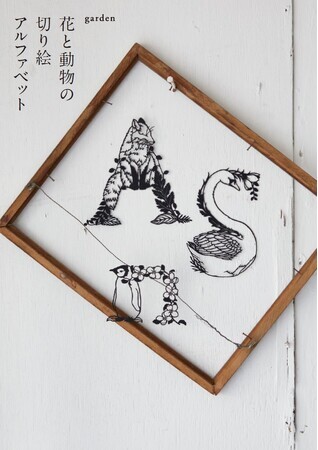 garden
花と動物の
切り絵
アルファベット
A S
n